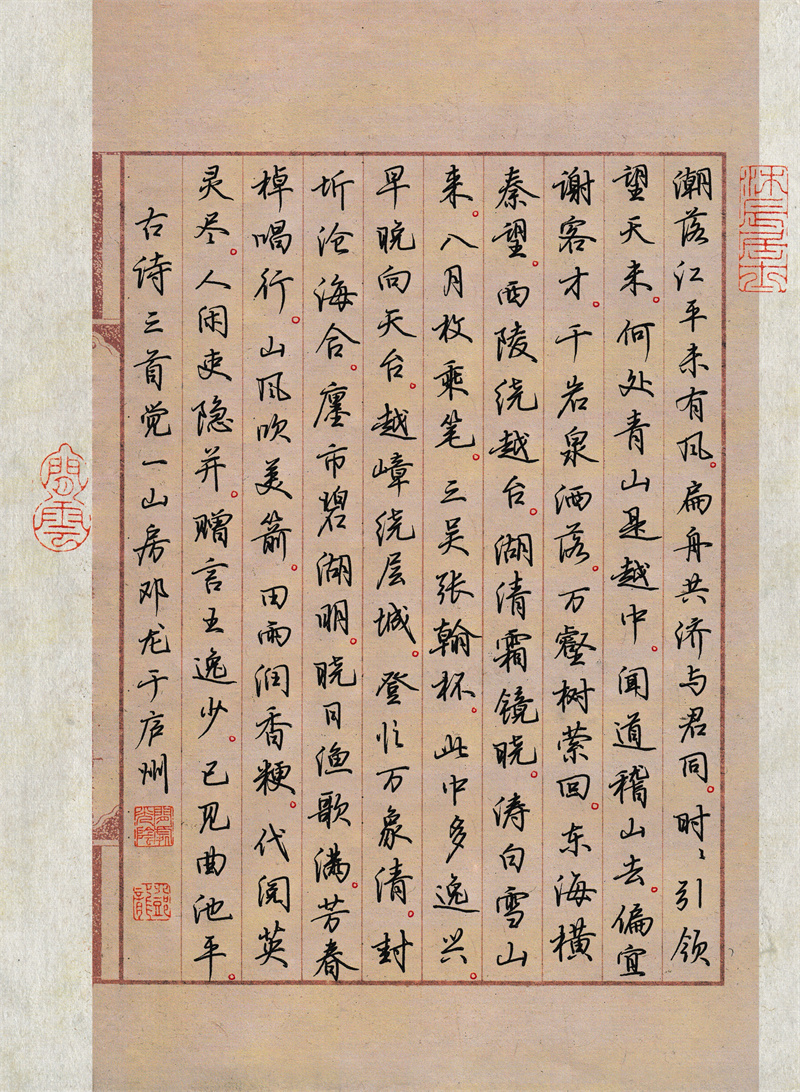 潮落江平未有风。扁舟共济与君同。时〻引领
望天末。何处青山是越中。闻道稽山去。偏宜
谢客才。千岩泉洒落。万壑树萦回。东海横
秦望。西陵绕越台。湖清霜镜晓。涛白雪山
来。八月枚乘笔。三吴张翰杯。此中多逸兴。
早晚向天台。越嶂绕层城。登临万象清。封
圻沧海合。廛市碧湖明。晓日渔歌满。芳春
棹唱行。山风吹美箭。田雨润香粳。代阅英
灵尽。人闲吏隐并。赠言王逸少。已见曲池平。
右诗三首觉一山房邓龙于庐州